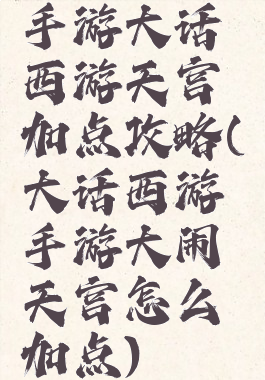 手游大话
西游天宫
加点攻略(
大话西游
手游大闹
天宫怎么
加点)